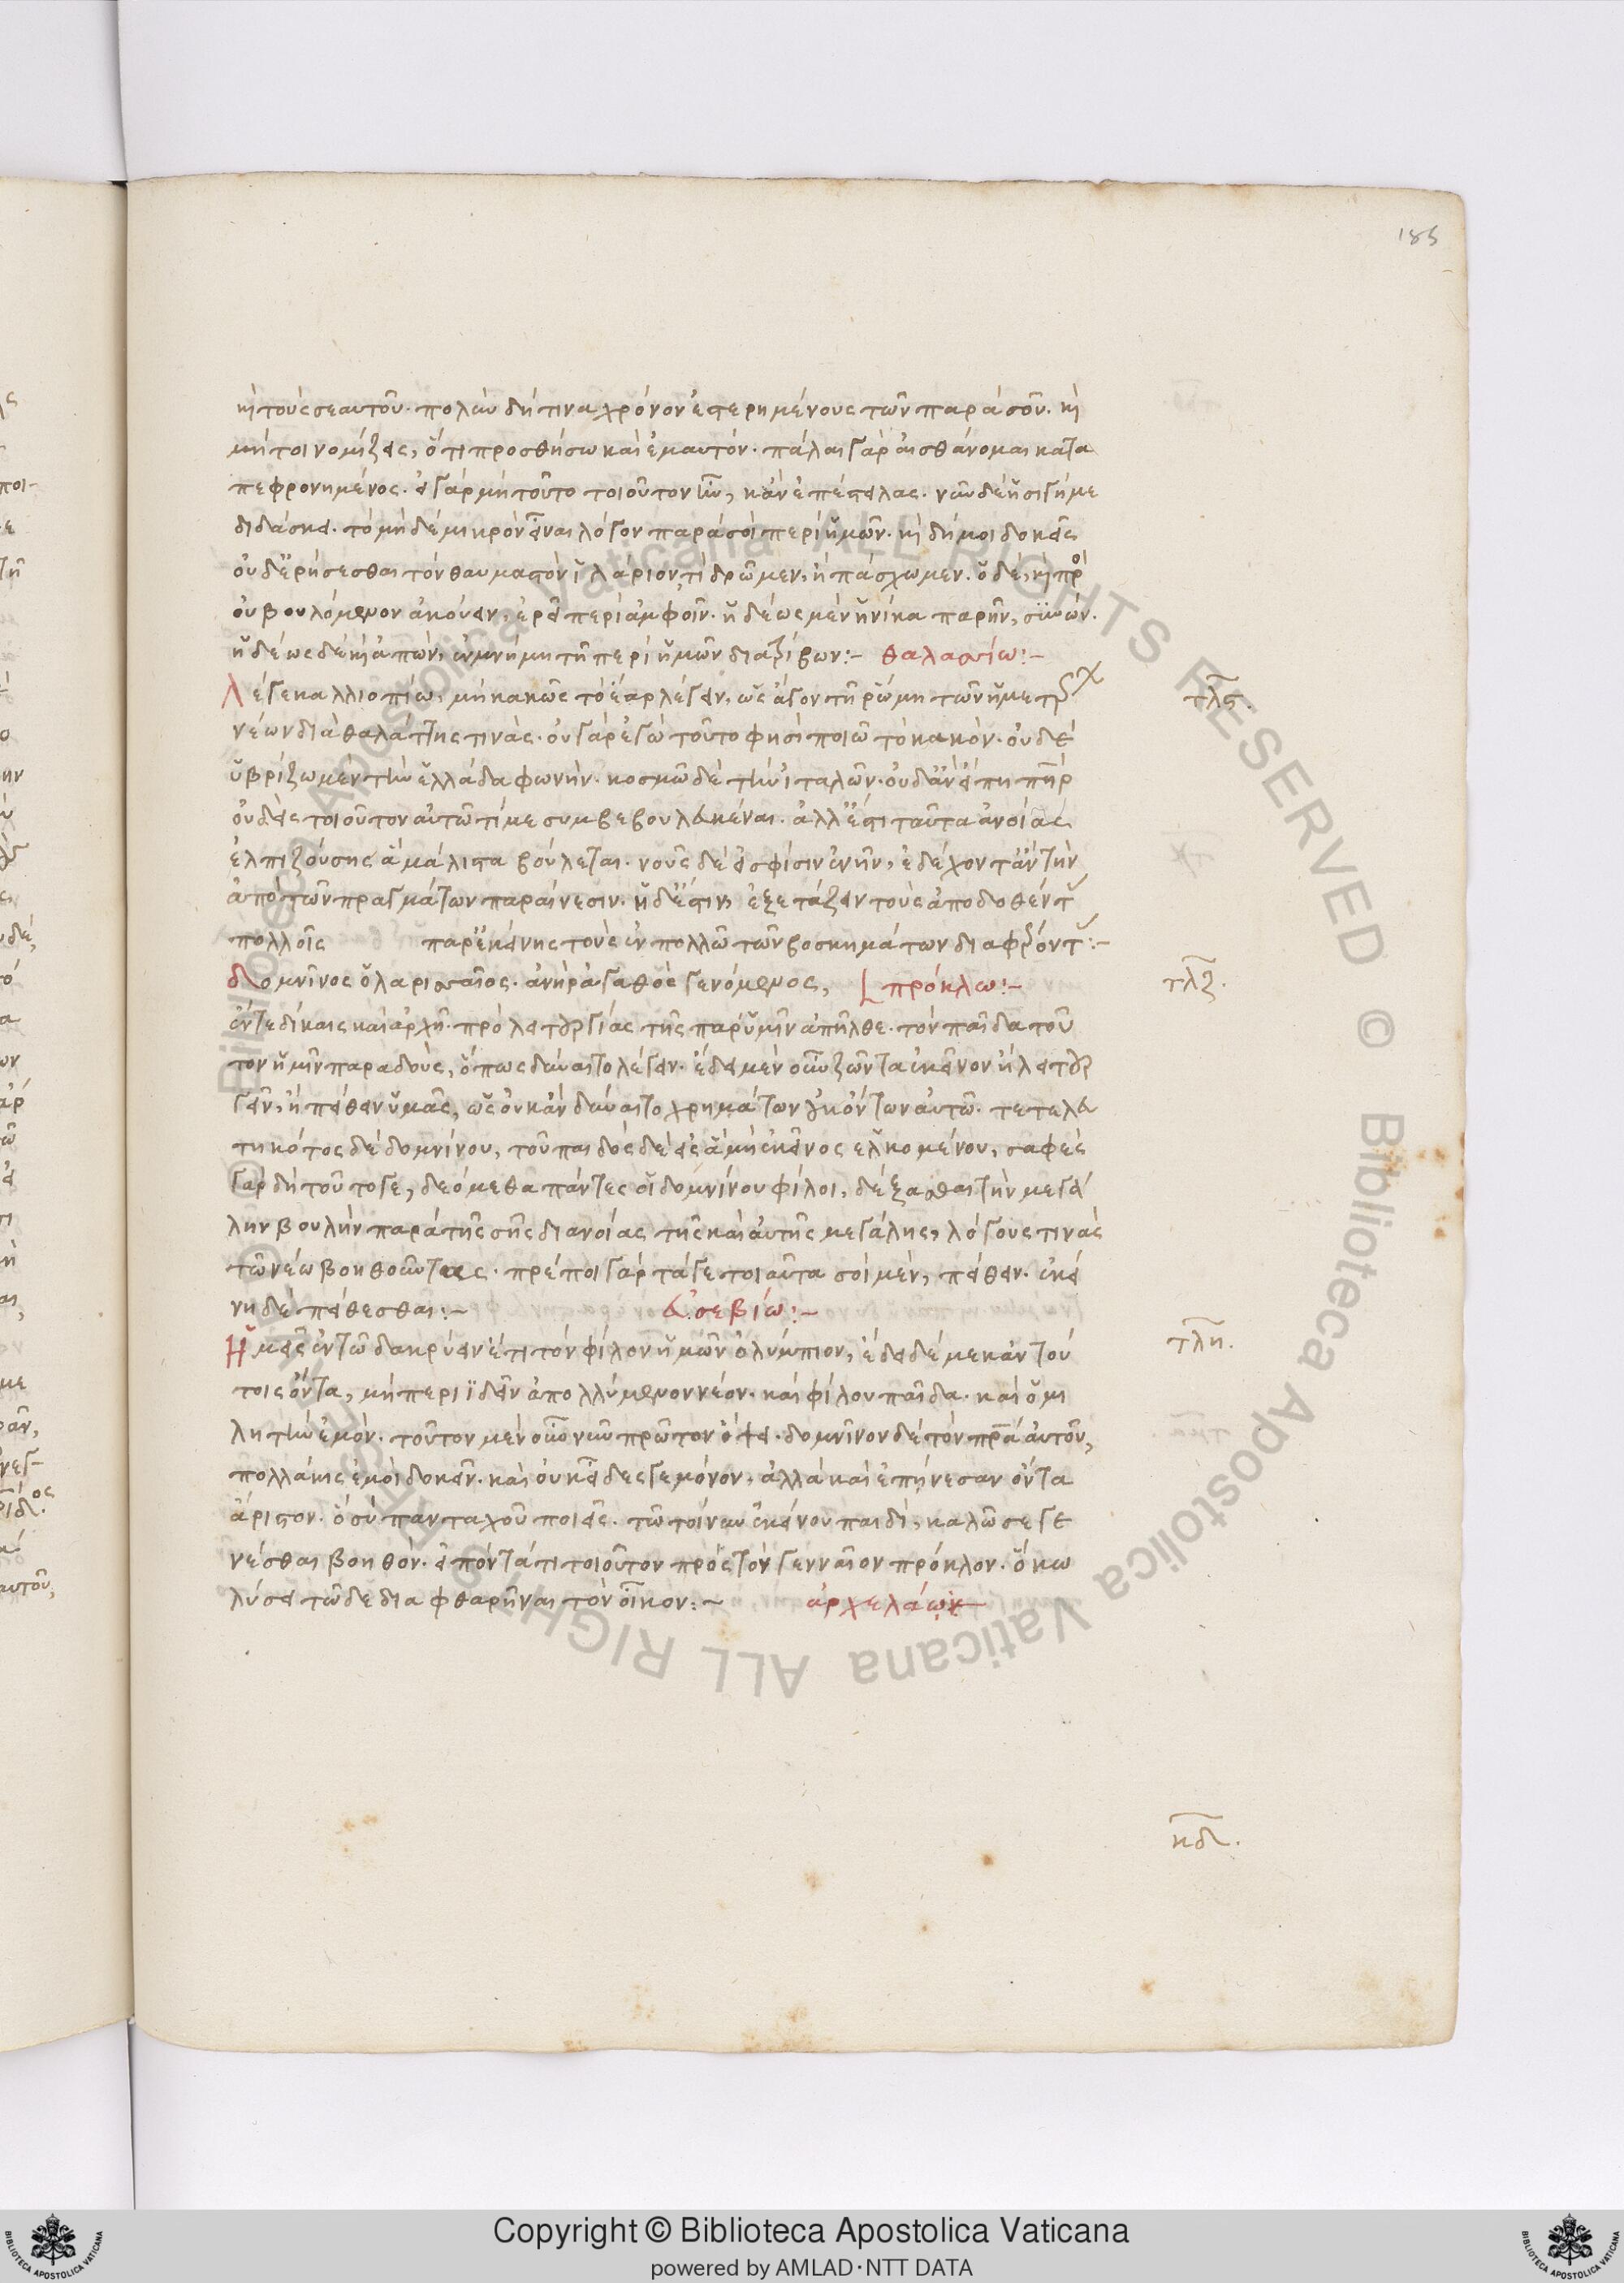 185
καὶ τοὺς σεαυτοῦ. πολὺν δή τινα χρόνον ἐστερημένους τῶν παρὰ σοῦ. καὶ
μήτοι νομίζεις, ὅτι προσθήσω καὶ ἐμαυτόν. πάλαι γὰρ αἰσθάνομαι κατα
πεφρονημένος. εἰ γὰρ μὴ τοῦτο τοιοῦτον ἦν, κἂν ἐπέστελλας. νῦν δὲ ἡ σιγή με
διδάσκει. τὸ μὴ δὲ μικρὸν εἶναι λόγον παρὰ σοὶ περὶ ἡμῶν. καὶ δή μοι δοκεῖς
οὐδ' ἐρήσεσθαι τὸν θαυμαστὸν ἱλάριον, τί δρῶμεν, ἢ πάσχωμεν. ὁ δὲ, καὶ πρὸς
οὐ βουλόμενον ἀκούειν, ἐρεῖ περὶ ἀμφοῖν. ἡδέως μὲν ἡνίκα παρῆν, συνών.
ἡδέως δὲ καὶ ἀπών, ἐν μνήμῃ τῇ περὶ ἡμῶν διατρίβων:– θαλασσίω:–
Λέγε καλλιοπίω, μὴ κακῶς τὸ ἔαρ λέγειν, ὡς ἄγον τῇ ῥώμῃ τῶν ἡμετέρων
τλϛ.
νέων διὰ θαλάττης τινάς. οὐ γὰρ ἐγὼ τοῦτο φησὶ ποιῶ τὸ κακόν. οὐδὲ
ὑβρίζωμεν τὴν ἑλλάδα φωνήν. κοσμῶ δὲ τὴν ἰταλῶν. οὐδ' ἂν εἴπῃ πατὴρ
οὐδεὶς τοιοῦτον αὐτῶ τί με συμβεβουλευκέναι. ἀλλ' ἔστι ταῦτα ἀνοίας
ἐλπιζούσης ἃ μάλιστα βούλεται. νοῦς δὲ εἰ σφίσιν ἐνῆν, ἐδέχοντ' ἂν τὴν
ἀπὸ τῶν πραγμάτων παραίνεσιν. ἡ δ' ἔστιν, ἐξετάζειν τοὺς ἀποδοθέντας
πολλοῖς παρ' ἐκείνης τοὺς ἐν πολλῶ τῶν βοσκημάτων διαφέροντας:–
δομνῖνος ὁ λαρισσαῖος. ἀνὴρ ἀγαθὸς γενόμενος, πρόκλω:–
τλζ.
ἔν τε δίκαις καὶ ἀρχῇ. πρὸ λειτουργίας τῆς παρ' ὑμῖν ἀπῆλθε. τὸν παῖδα τοῦ
τον ἡμῖν παραδούς, ὅπως δύναιτο λέγειν. ἔδει μὲν οὖν ζῶντα ἐκεῖνον ἢ λειτουρ
γεῖν, ἢ πείθειν ὑμᾶς, ὡς οὐκ ἂν δύναιτο χρημάτων οὐκ ὄντων αὐτῶ. τετελευ
τηκότος δὲ δομνίνου, τοῦ παιδὸς δὲ εἰς ἃ μὴ ἐκεῖνος ἑλκομένου, σαφὲς
γὰρ δὴ τοῦτό γε, δεόμεθα πάντες οἱ δομνίνου φίλοι, δέξασθαι τὴν μεγά
λην βουλὴν παρὰ τῆς σῆς διανοίας τῆς καὶ αὐτῆς μεγάλης, λόγους τινὰς
τῶ νέω βοηθοῦντας. πρέποι γὰρ τά γε τοιαῦτα σοὶ μὲν, πείθειν. ἐκεί
νη δὲ πείθεσθαι:– εὐσεβίω:–
Ἡμᾶς ἐν τῶ δακρύειν ἔτι τὸν φίλον ἡμῶν ὀλύμπιον, ἔδει δέ με κἀν τού
τλη.
τοις ὄντα, μὴ περιϊδεῖν ἀπολλύμενον νέον. καὶ φίλου παῖδα. καὶ ὁμι
λητὴν ἐμόν. τοῦτον μὲν οὖν νῦν πρῶτον ὄψει. δομνῖνον δὲ τὸν πατέρα αὐτοῦ,
πολλάκις ἐμοὶ δοκεῖν. καὶ οὐκ εἶδες γε μόνον, ἀλλὰ καὶ ἐπῄνεσαν ὄντα
ἄριστον. ὃ σὺ πανταχοῦ ποιεῖς. τῶ τοίνυν ἐκείνου παιδὶ, καλῶ σε γε
νέσθαι βοηθόν. εἰπόντά τι τοιοῦτον πρὸς τὸν γενναῖον πρόκλον. ὃ κω
λύσει τῶδε διαφθαρῆναι τὸν οἶκον:– ἀρχελάω:–
κδ.
Copyright © Biblioteca Apostolica Vaticana
powered by AMLAD · NTT DATA